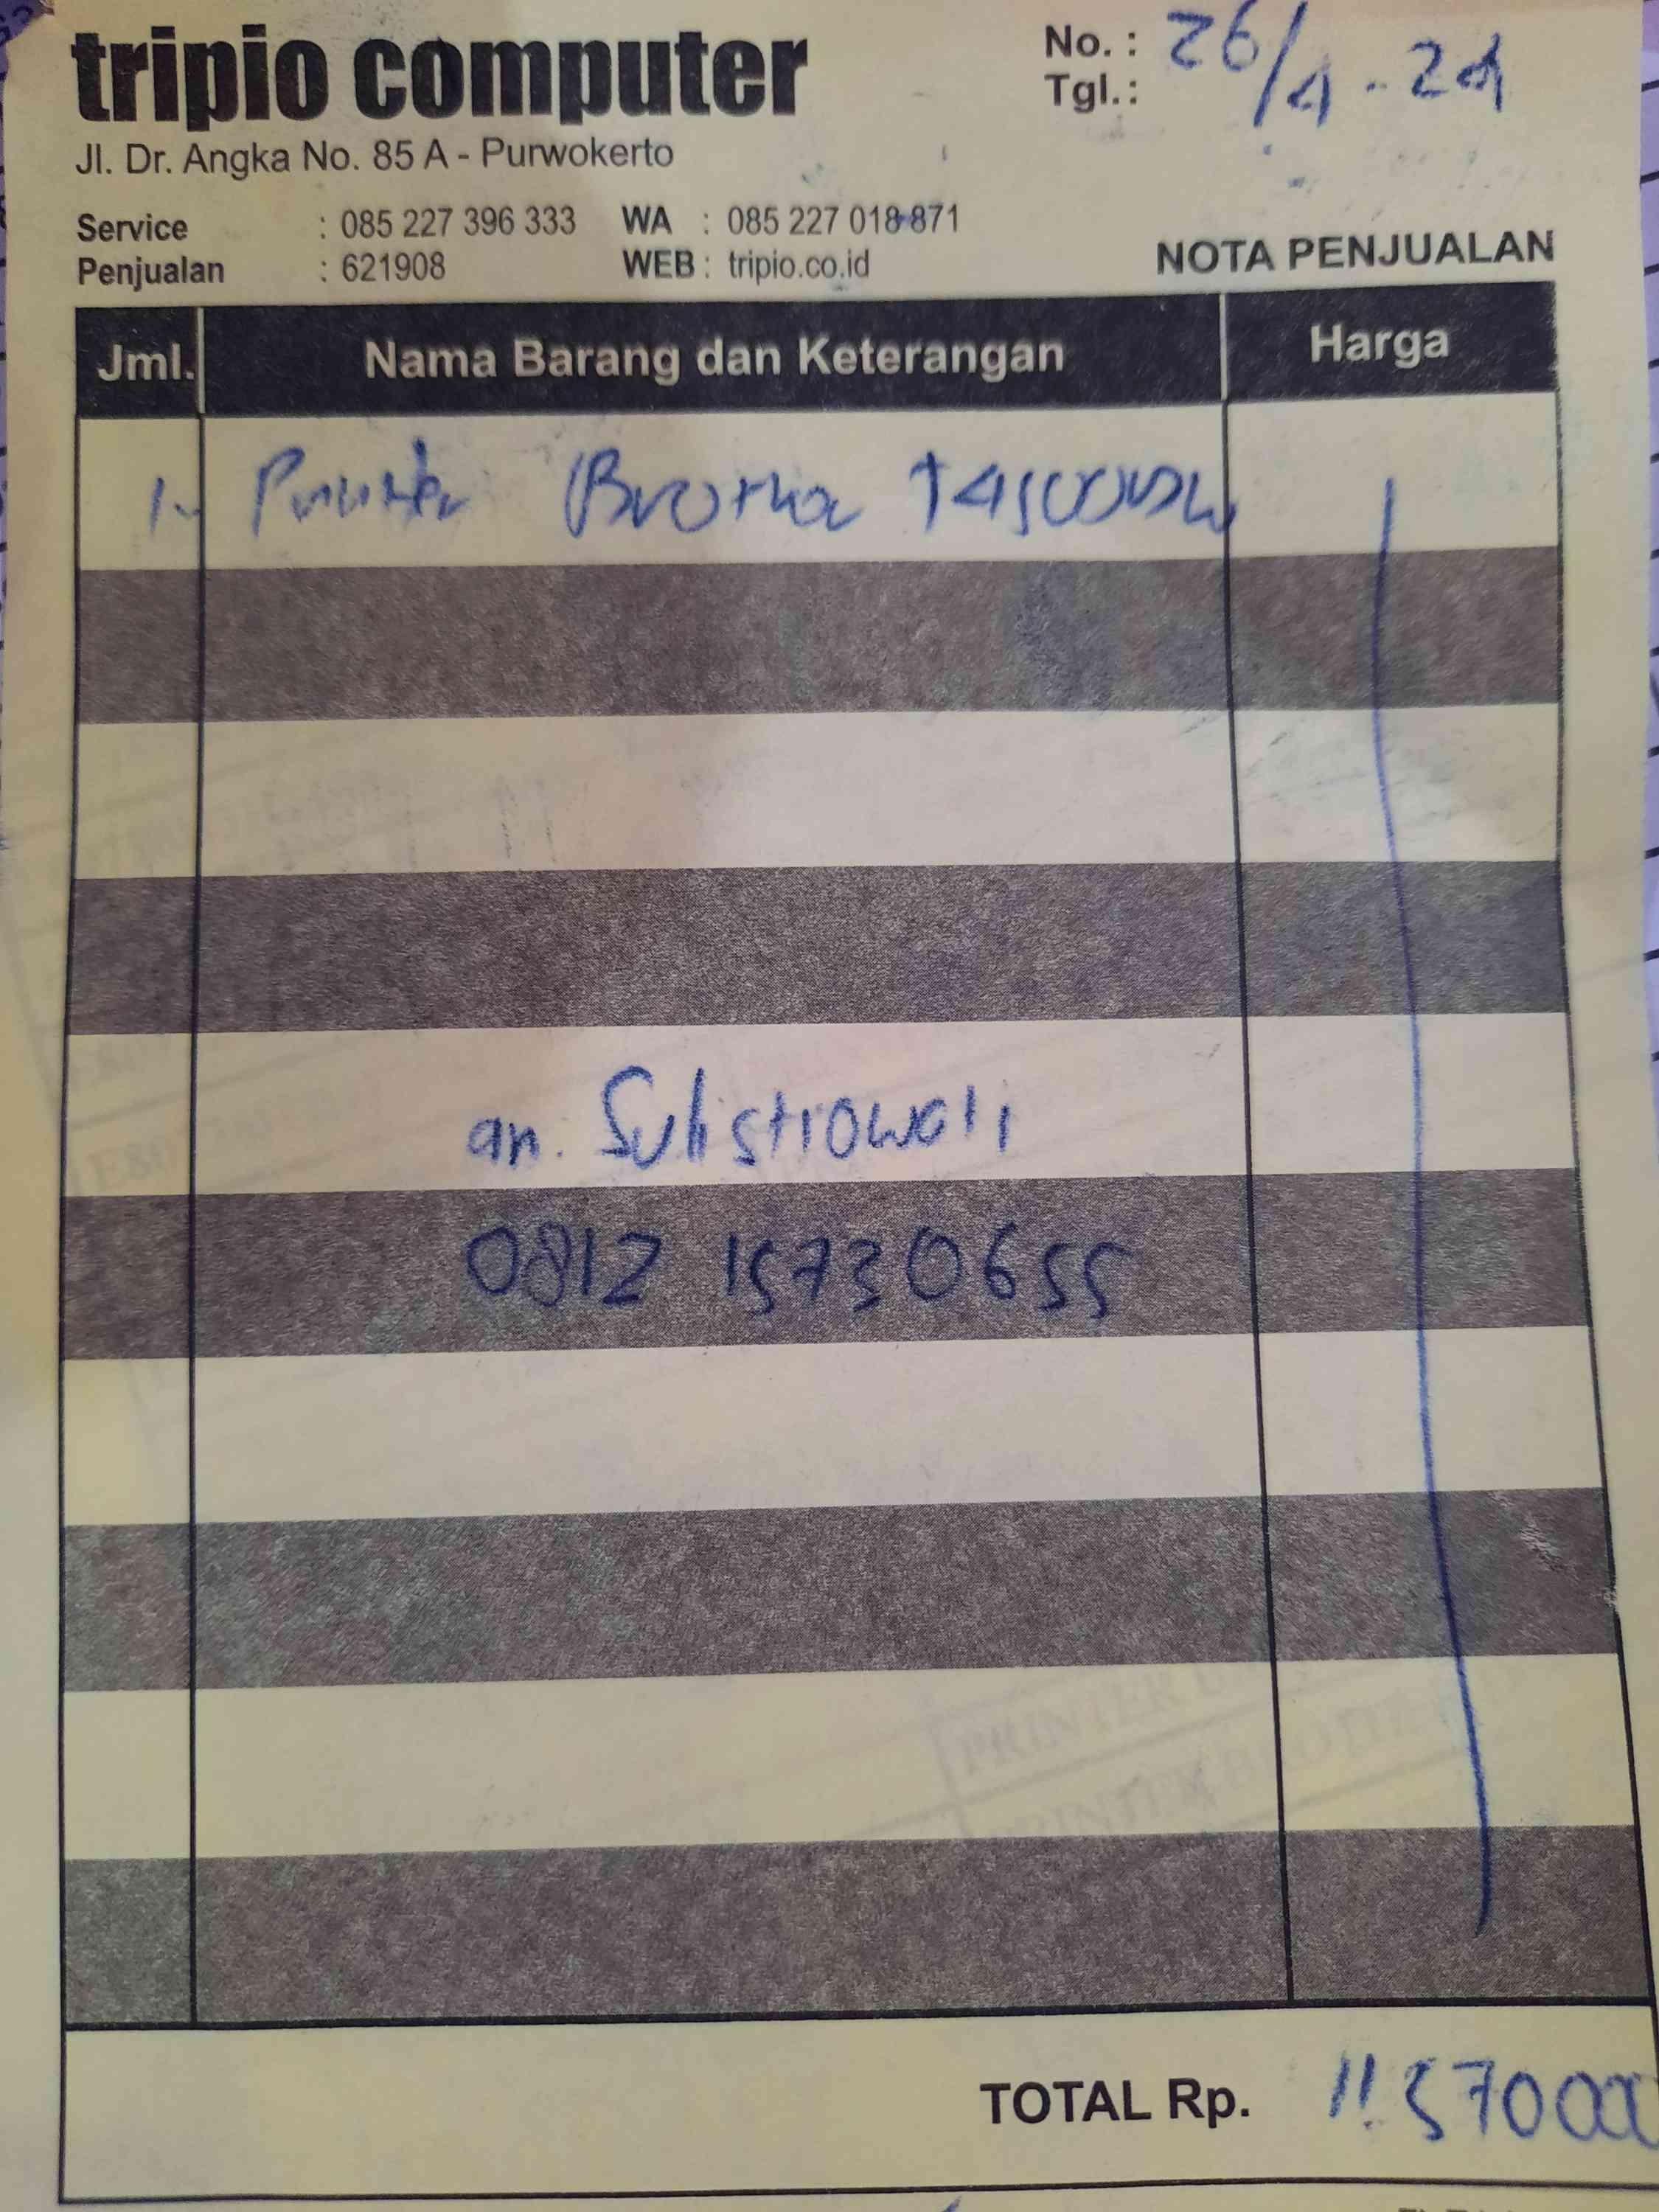 tripio computer
Jl. Dr. Angka No. 85 A - Purwokerto
Service : 085 227 396 333 WA : 085 227 018 871
Penjualan : 621908 WEB : tripio.co.id
No. :
Tgl. : 26/4 - 24
NOTA PENJUALAN
Jml. Nama Barang dan Keterangan Harga
1. Printer Brother T4500DW
an. Sulistiowati
0812 15730655
PRINTER
PRINTER BROTHER
TOTAL Rp. 11.570000